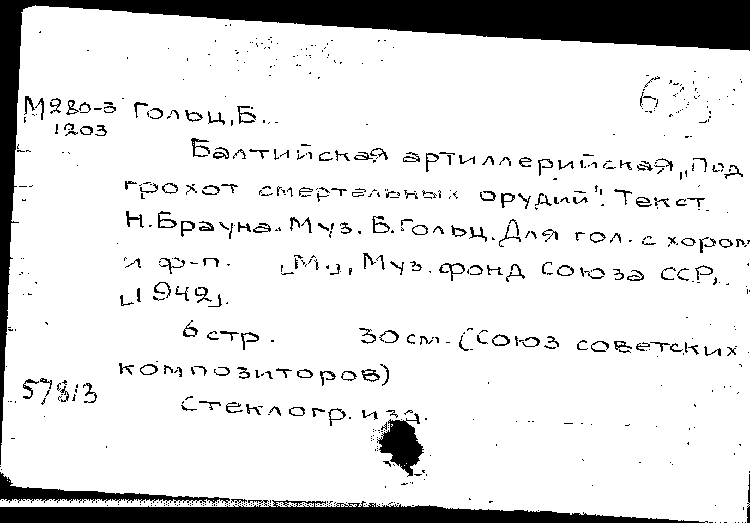 М280-3 Гольц, Б...
1203
Балтийская артиллерийская „Под
грохот смертельных орудий". Текст
Н. Брауна. Муз. Б. Гольц. Для гол. с хором
и ф-п. [М], Муз. фонд Союза ССР,
[1942].
6 стр. 30 см. (Союз советских
композиторов)
57813
Стеклогр. изд.